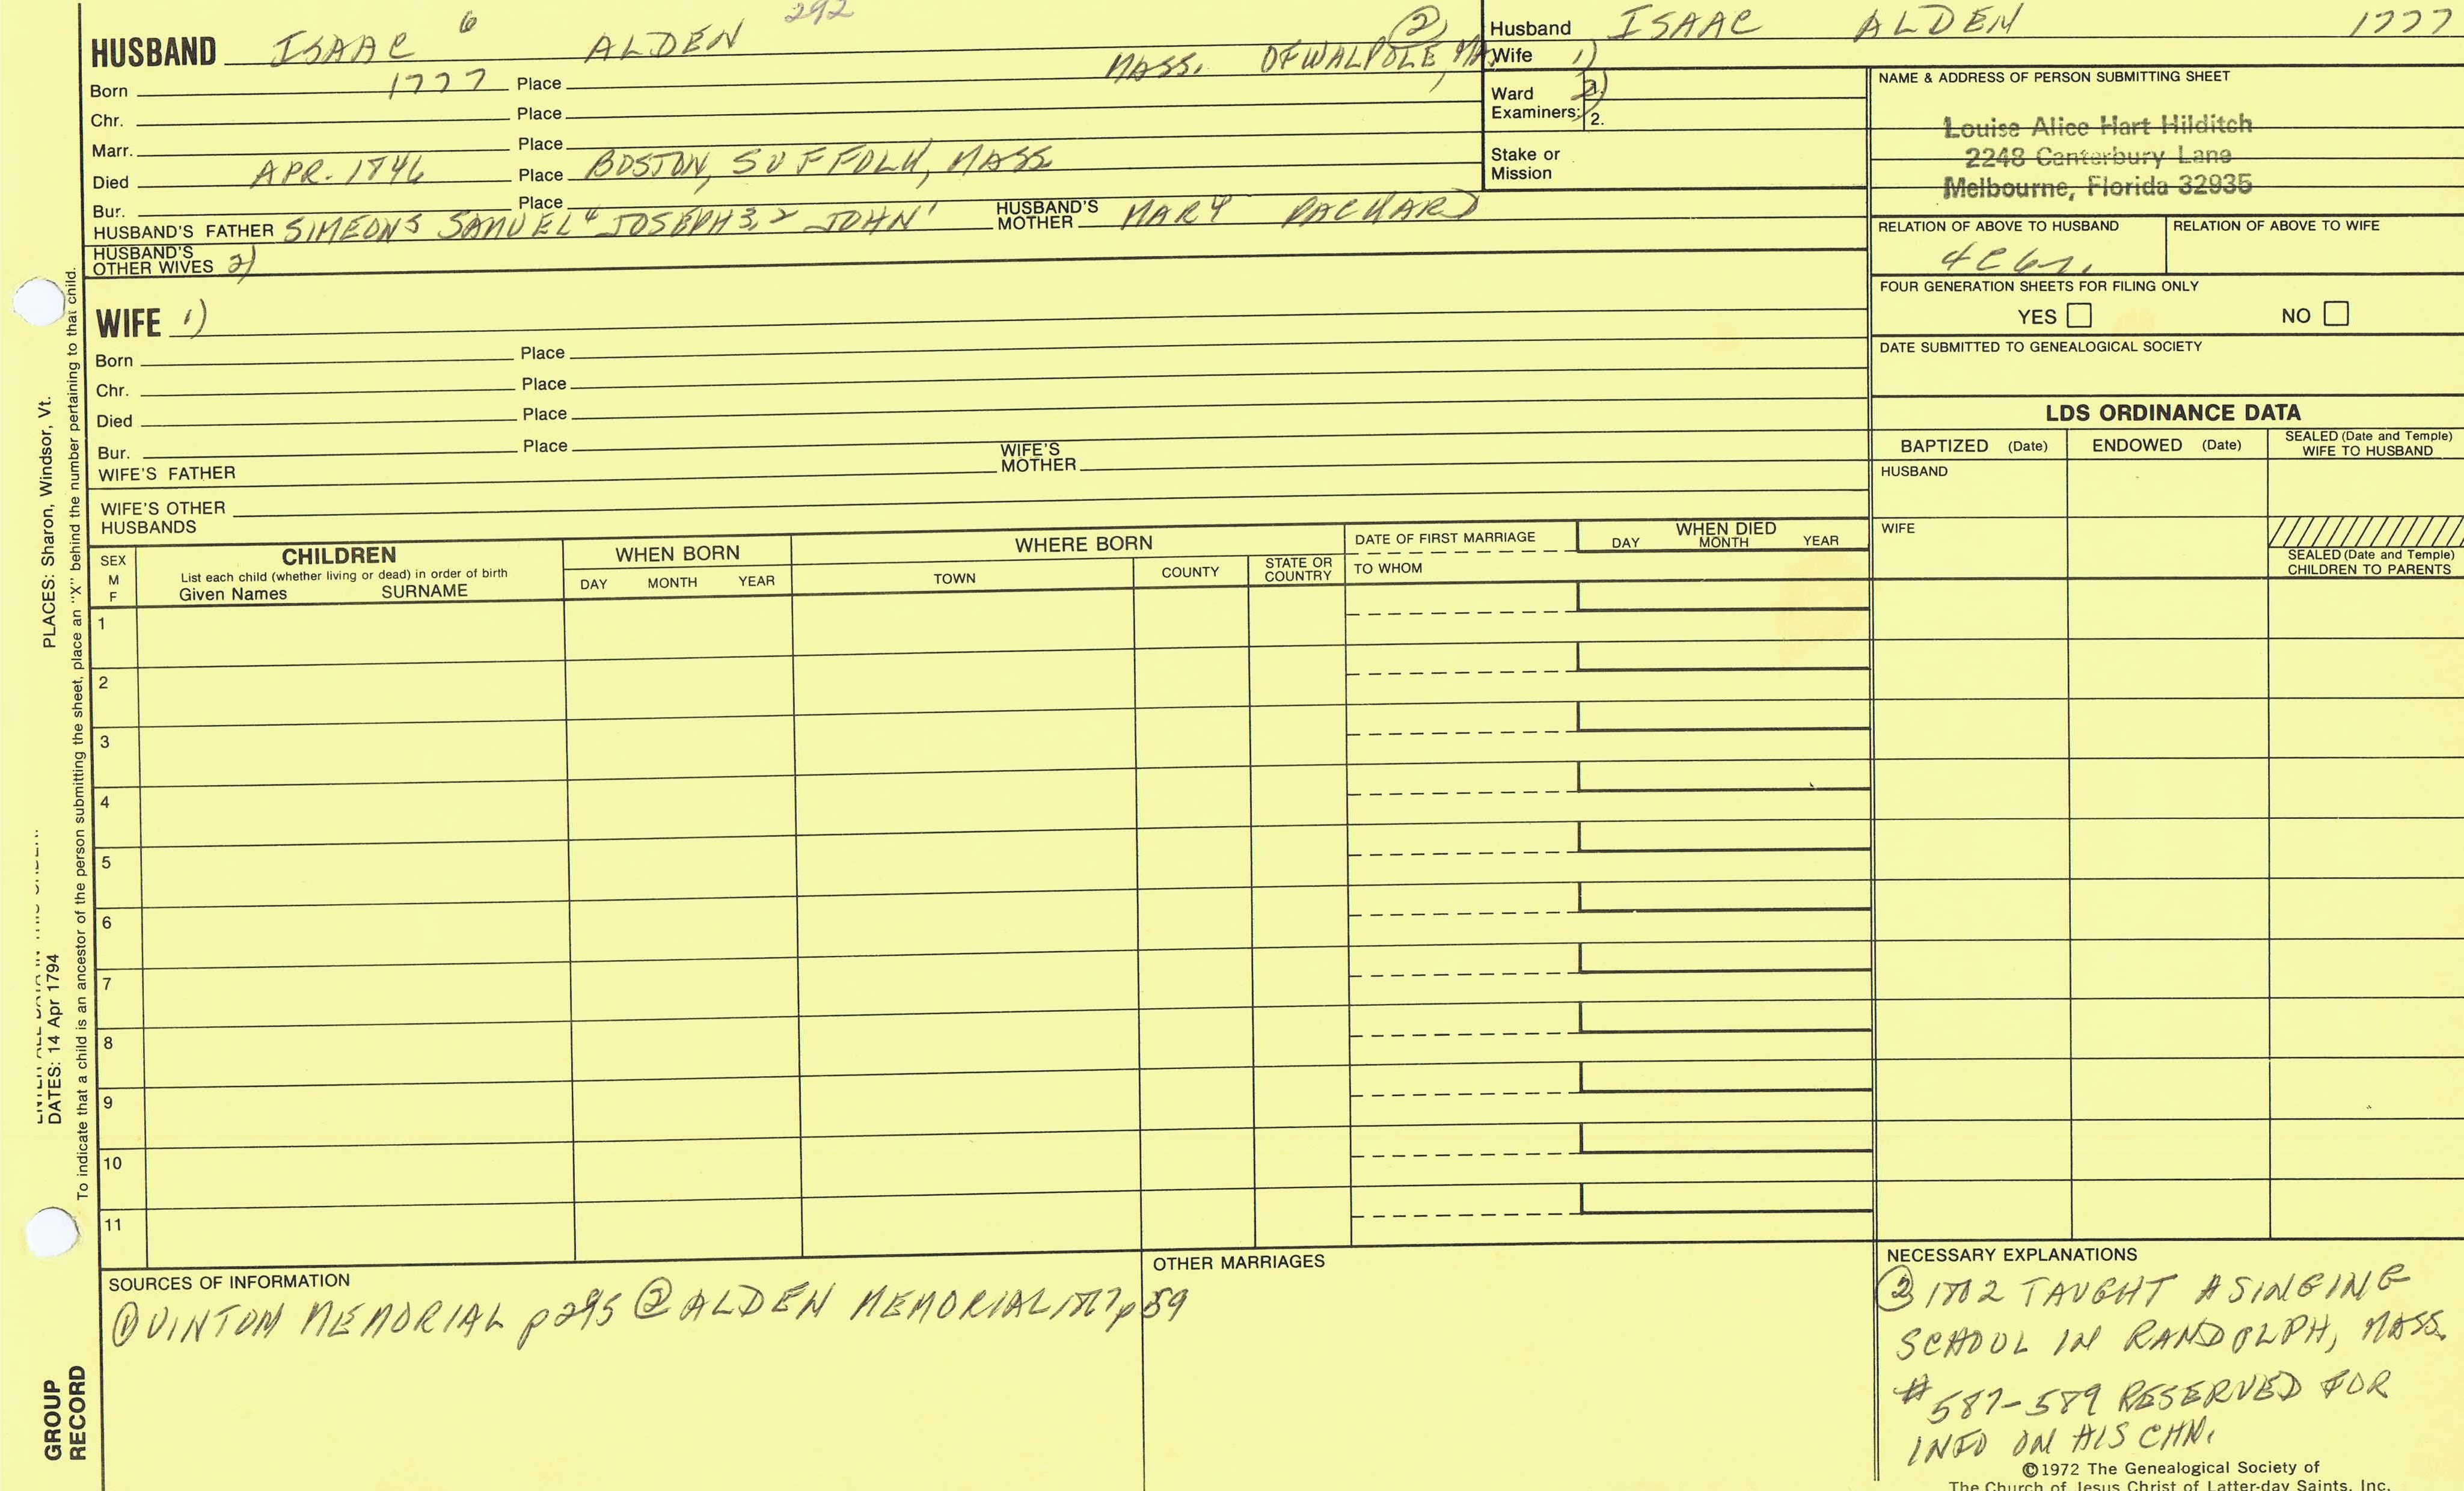 292
HUSBAND ISAAC 6 ALDEN
Born 1777 Place MASS. OF WALPOLE, MA. (2)
Chr. Place
Marr. Place
Died APR. 1846 Place BOSTON, SUFFOLK, MASS
Bur. Place
HUSBAND'S FATHER SIMEON 5 SAMUEL 4 JOSEPH 3, 2 JOHN 1 HUSBAND'S MOTHER MARY PACKARD
HUSBAND'S OTHER WIVES 2)
WIFE 1)
Born Place
Chr. Place
Died Place
Bur. Place
WIFE'S FATHER WIFE'S MOTHER
WIFE'S OTHER HUSBANDS
Husband ISAAC ALDEN 1777
Wife 1)
2)
Ward Examiners: 1.
2.
Stake or Mission
NAME & ADDRESS OF PERSON SUBMITTING SHEET
Louise Alice Hart Hilditch
2248 Canterbury Lane
Melbourne, Florida 32935
RELATION OF ABOVE TO HUSBAND RELATION OF ABOVE TO WIFE
4C6r.
FOUR GENERATION SHEETS FOR FILING ONLY
YES NO
DATE SUBMITTED TO GENEALOGICAL SOCIETY
LDS ORDINANCE DATA
BAPTIZED (Date) ENDOWED (Date) SEALED (Date and Temple) WIFE TO HUSBAND
HUSBAND
WIFE
SEALED (Date and Temple) CHILDREN TO PARENTS
SEX M F
CHILDREN
List each child (whether living or dead) in order of birth
Given Names SURNAME
WHEN BORN
DAY MONTH YEAR
WHERE BORN
TOWN COUNTY STATE OR COUNTRY
DATE OF FIRST MARRIAGE
TO WHOM
WHEN DIED
DAY MONTH YEAR
1
2
3
4
5
6
7
8
9
10
11
SOURCES OF INFORMATION
① VINTON MEMORIAL p 295 ② ALDEN MEMORIAL 1867 p 59
OTHER MARRIAGES
NECESSARY EXPLANATIONS
② 1802 TAUGHT A SINGING
SCHOOL IN RANDOLPH, MASS.
# 587-589 RESERVED FOR
INFO ON HIS CHN.
©1972 The Genealogical Society of
The Church of Jesus Christ of Latter-day Saints, Inc.
PLACES: Sharon, Windsor, Vt.
DATES: 14 Apr 1794
To indicate that a child is an ancestor of the person submitting the sheet, place an "X" behind the number pertaining to that child.
GROUP
RECORD